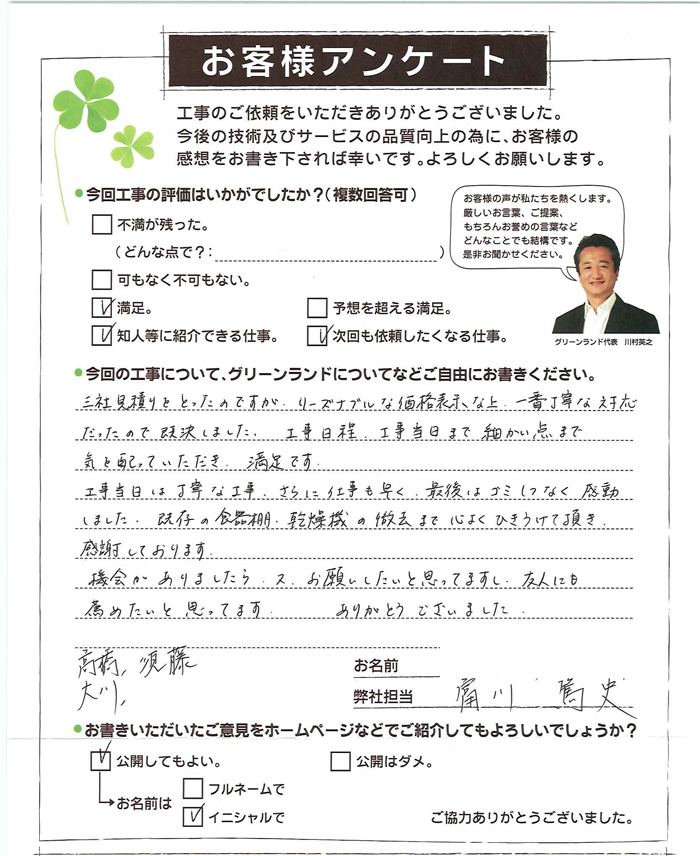 お客様アンケート
工事のご依頼をいただきありがとうございました。
今後の技術及びサービスの品質向上の為に、お客様の
感想をお書き下されば幸いです。よろしくお願いします。
今回工事の評価はいかがでしたか?(複数回答可)
不満が残った。
(どんな点で?: )
可もなく不可もない。
満足。
予想を超える満足。
知人等に紹介できる仕事。
次回も依頼したくなる仕事。
お客様の声が私たちを熱くします。
厳しいお言葉、ご提案、
もちろんお誉めの言葉など
どんなことでも結構です。
是非お聞かせください。
グリーンランド代表 川村英之
今回の工事について、グリーンランドについてなどご自由にお書きください。
三社見積りをとったのですが、リーズナブルな価格表示、な上、一番丁寧な対応
だったので即決しました。 工事日程、工事当日まで細かい点まで
気を配っていただき、満足です。
工事当日は丁寧な工事、さらに仕事も早く、最後はゴミ1つなく感動
しました。既存の食器棚、乾燥機の撤去まで心よくひきうけて頂き、
感謝しております。
機会がありましたら、又、お願いしたいと思ってますし、友人にも
薦めたいと思ってます。 ありがとうございました。
高橋、須藤
大川、
お名前
弊社担当 川 篤史
お書きいただいたご意見をホームページなどでご紹介してもよろしいでしょうか?
公開してもよい。
公開はダメ。
お名前は
フルネームで
イニシャルで
ご協力ありがとうございました。